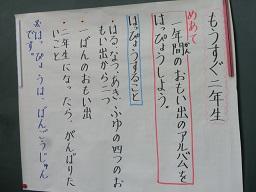 もうすぐ二年生
めあて
一年間のおもい出のアルバムを
はっぴょうしよう。
はっぴょうすること
・はる、なつ、あき、ふゆの四つのお
もい出から二つ
・一ばんのおもい出
・二年生になったら、がんばりた
いこと
おはっぴょうは、ばんごうじゅん
です。